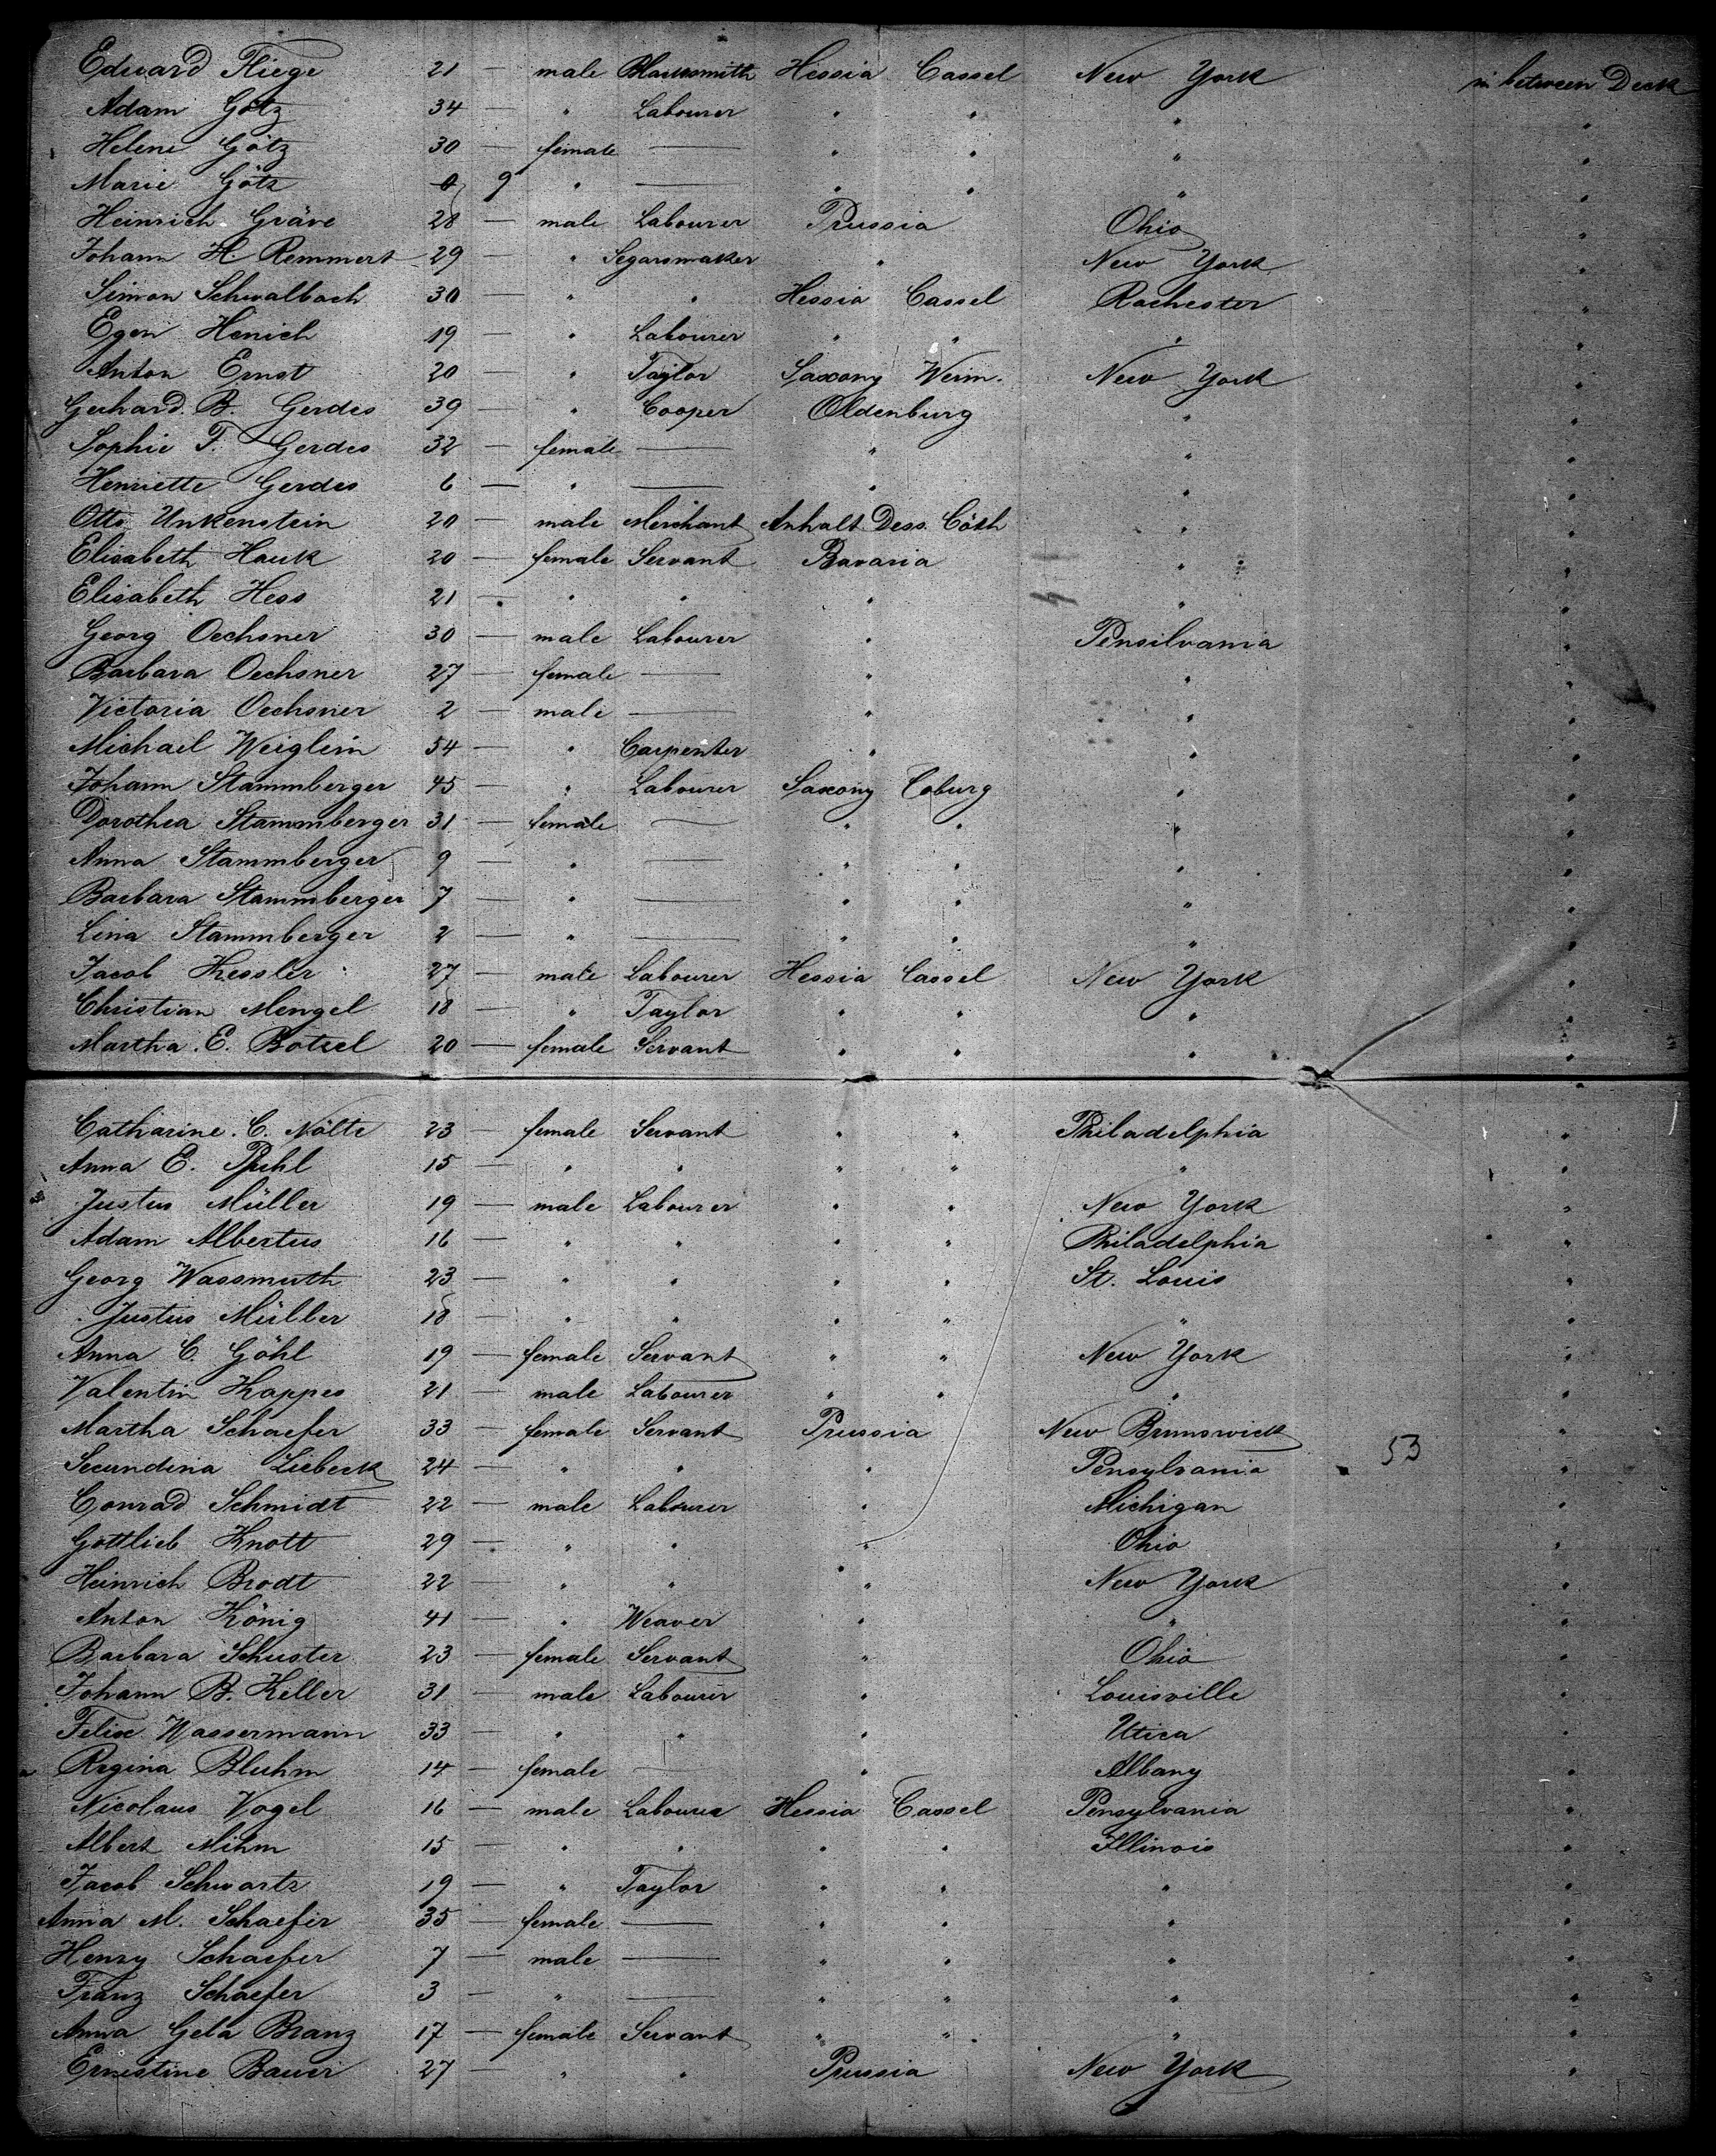 Eduard Fliege 21 — male Blacksmith Hessia Cassel New York in between Deck
Adam Götz 34 — " Labourer " " " "
Helene Götz 30 — female — " " " "
Marie Götz 0 9 " — " " " "
Heinrich Gräve 28 — male Labourer Prussia Ohio "
Johann H. Remmert 29 — " Segarsmaker " New York "
Simon Schwalbach 30 — " " Hessia Cassel Rochester "
Egon Henich 19 — " Labourer " " " "
Anton Ernst 20 — " Taylor Saxony Weim. New York "
Gerhard B. Gerdes 39 — " Cooper Oldenburg " "
Sophie F. Gerdes 32 — female — " " "
Henriette Gerdes 6 — " — " " "
Otto Unkenstein 20 — male Merchant Anhalt Dess. Cöth " "
Elisabeth Hauk 20 — female Servant Bavaria " "
Elisabeth Hess 21 " " " " "
Georg Oechsner 30 — male Labourer " Pensilvania "
Barbara Oechsner 27 — female — " " "
Victoria Oechsner 2 — male — " " "
Michael Weiglein 54 — " Carpenter " " "
Johann Stammberger 45 — " Labourer Saxony Coburg " "
Dorothea Stammberger 31 — female — " " " "
Anna Stammberger 9 — " — " " " "
Barbara Stammberger 7 — " — " " " "
Lina Stammberger 2 — " — " " " "
Jacob Kessler 27 — male Labourer Hessia Cassel New York "
Christian Mengel 18 — " Taylor " " " "
Martha E. Botzel 20 — female Servant " " " "
Catharine C. Nölte 23 — female Servant " " Philadelphia "
Anna E. Pfuhl 15 — " " " " " "
Justus Müller 19 — male Labourer " " New York "
Adam Albertus 16 — " " " " Philadelphia "
Georg Wassmuth 23 — " " " " St. Louis "
Justus Müller 18 — " " " " " "
Anna C. Göhl 19 — female Servant " " New York "
Valentin Kappes 21 — male Labourer " " " "
Martha Schaefer 33 — female Servant Prussia New Brunswick "
Secundina Liebeck 24 — " " " Pensylvania 53 "
Conrad Schmidt 22 — male Labourer " Michigan "
Gottlieb Knott 29 — " " " Ohio "
Heinrich Brodt 22 — " " " New York "
Anton König 41 — " Weaver " " "
Barbara Schuster 23 — female Servant " Ohio "
Johann B. Keller 31 — male Labourer " Louisville "
Felix Wassermann 33 — " " " Utica "
Regina Bluhm 14 — female — " Albany "
Nicolaus Vogel 16 — male Labourer Hessia Cassel Pensylvania "
Albert Mihm 15 — " " " " Illinois "
Jacob Schwartz 19 — " Taylor " " " "
Anna M. Schaefer 35 — female — " " " "
Henry Schaefer 7 — male — " " " "
Franz Schaefer 3 — " — " " " "
Anna Gela Branz 17 — female Servant " " " "
Ernestine Bauer 27 — " " Prussia New York "